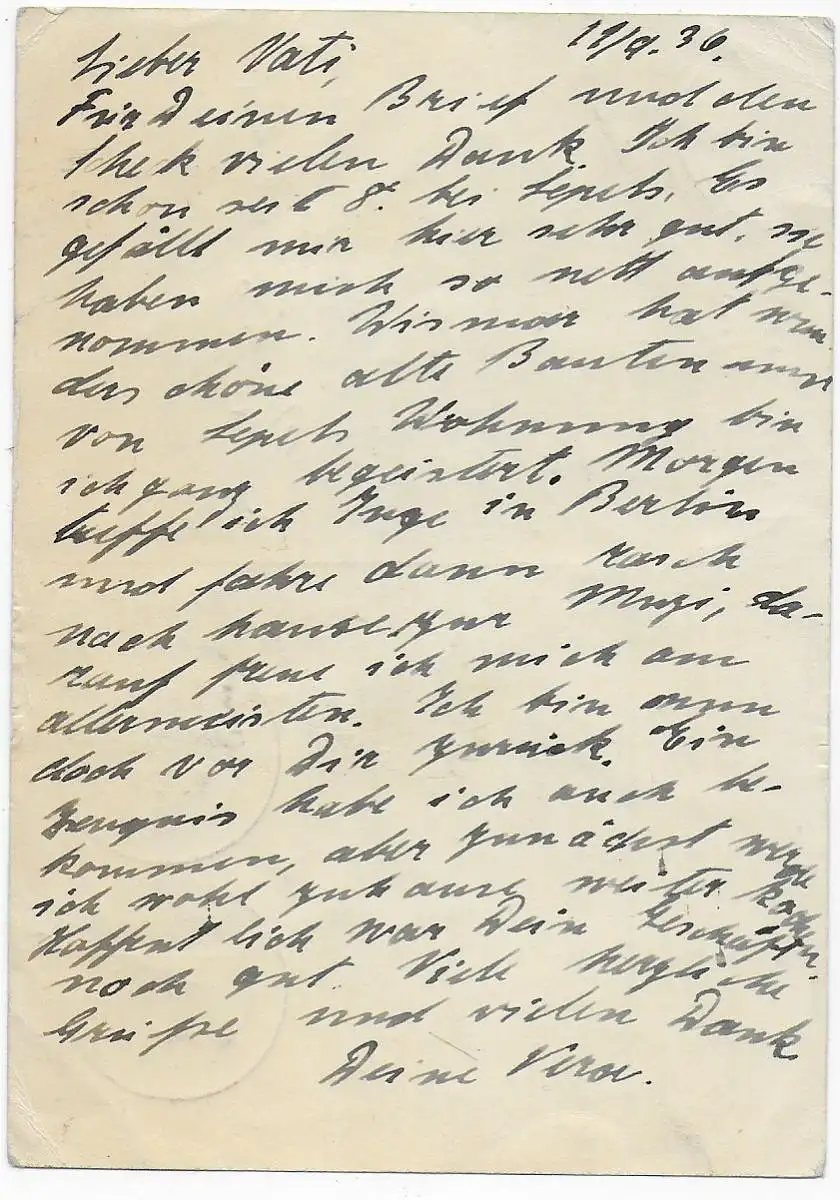 11/9.36.
Lieber Vati,
Für Deinen Brief und den
Scheck vielen Dank. Ich bin
schon seit 8. bei Lepels. Es
gefällt mir hier sehr gut, sie
haben mich so nett aufge-
nommen. Wismar hat wun
derschöne alte Bauten und
von Lepels Wohnung bin
ich ganz begeistert. Morgen
treffe ich Inge in Berlin
und fahre dann rasch
nach hause zur Muzi, da-
rauf freue ich mich am
allermeisten. Ich bin nun
doch vor Dir zurück. Ein
Zeugnis habe ich auch be-
kommen, aber zunächst werde
ich wohl zuhause weiter kochen
Hoffentlich war Dein
noch gut. Viele herzliche
Grüße und vielen Dank
Deine Vera.